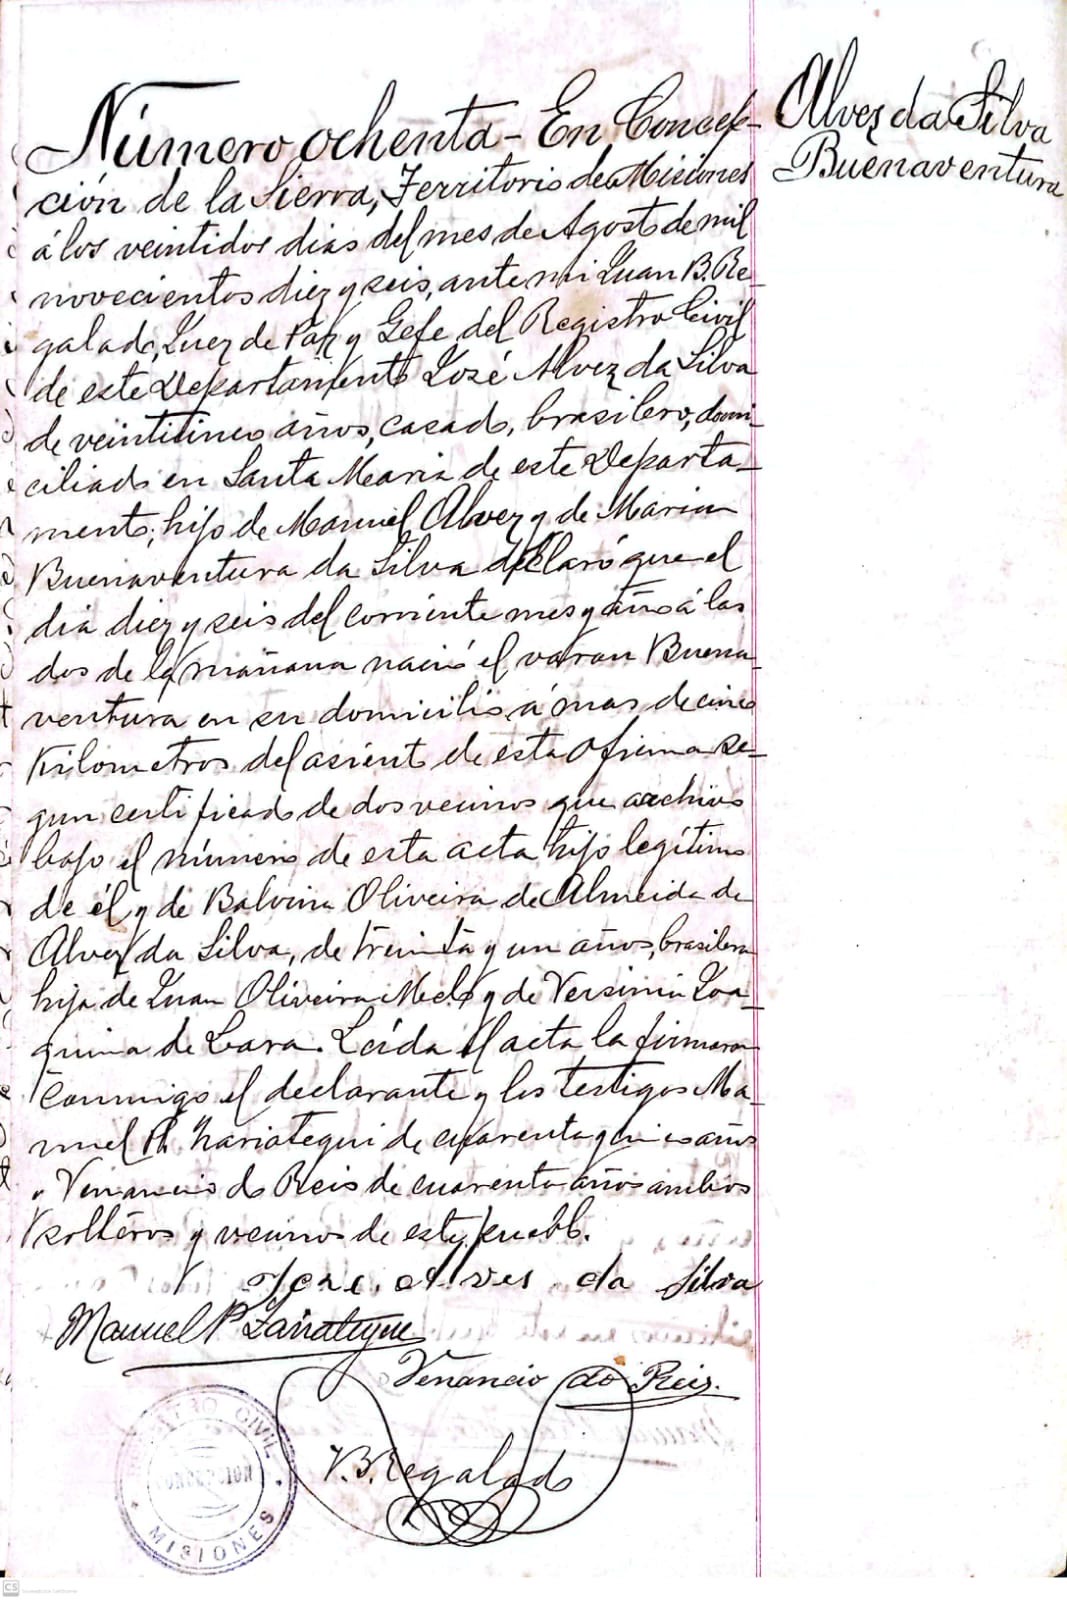 Alvez da Silva
Buenaventura
Número ochenta - En Concep-
ción de la Sierra, Territorio de Misiones
á los veintidos dias del mes de Agosto de mil
novecientos diez y seis, ante mi Juan B. Re
galado, Juez de Paz y Gefe del Registro Civil
de este Departamento José Alvez da Silva
de veinticinco años, casado, brasilero, domi-
ciliado en Santa Maria de este Departa-
mento, hijo de Manuel Alvez y de Maria
Buenaventura da Silva declaró que el
dia diez y seis del corriente mes y año á las
dos de la mañana nació el varon Buena-
ventura en su domicilio á mas de cinco
Kilometros del asiento de esta Oficina se-
gun certificado de dos vecinos que archivo
bajo el número de esta acta hijo legítimo
de él y de Balvina Oliveira de Almeida de
Alvez da Silva, de treinta y un años, brasilera
hija de Juan Oliveira Melo y de Versinia Joa-
quina de Lara. Leida el acta la firmaron
conmigo el declarante y los testigos Ma-
nuel P. de cuarenta y años
y Venancio do Reis de cuarenta años ambos
solteros y vecinos de este pueblo.
Jose Alves da Silva
Manuel P.
Venancio do Reis.
J. B. Regalado
REGISTRO CIVIL
CONCEPCION
MISIONES
CS